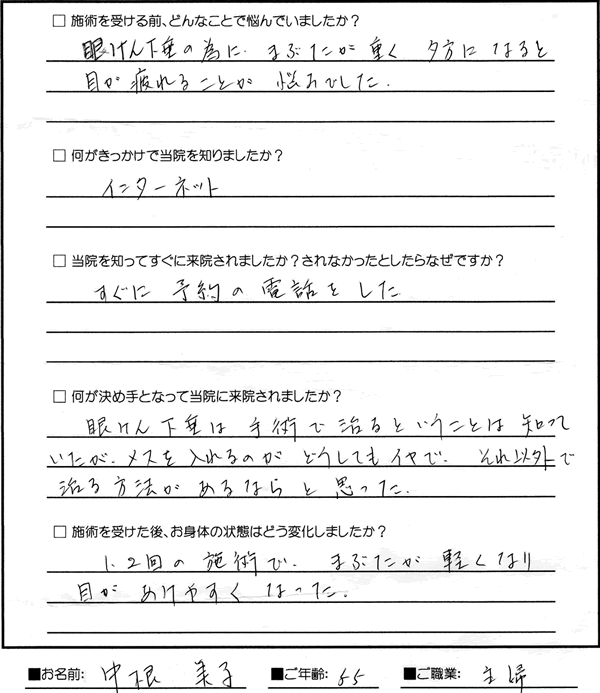 □ 施術を受ける前、どんなことで悩んでいましたか?
眼けん下垂の為に、まぶたが重く 夕方になると
目が疲れることが 悩みでした.
□ 何がきっかけで当院を知りましたか?
インターネット
□ 当院を知ってすぐに来院されましたか?されなかったとしたらなぜですか?
すぐに 予約の電話をした.
□ 何が決め手となって当院に来院されましたか?
眼けん下垂は手術で治るということは知って
いたが、メスを入れるのが どうしてもイヤで、それ以外で
治る方法があるならと思った.
□ 施術を受けた後、お身体の状態はどう変化しましたか?
1.2回の施術で、まぶたが軽くなり
目があけやすくなった.
■お名前: 中根 美子 ■ご年齢: 65 ■ご職業: 主婦